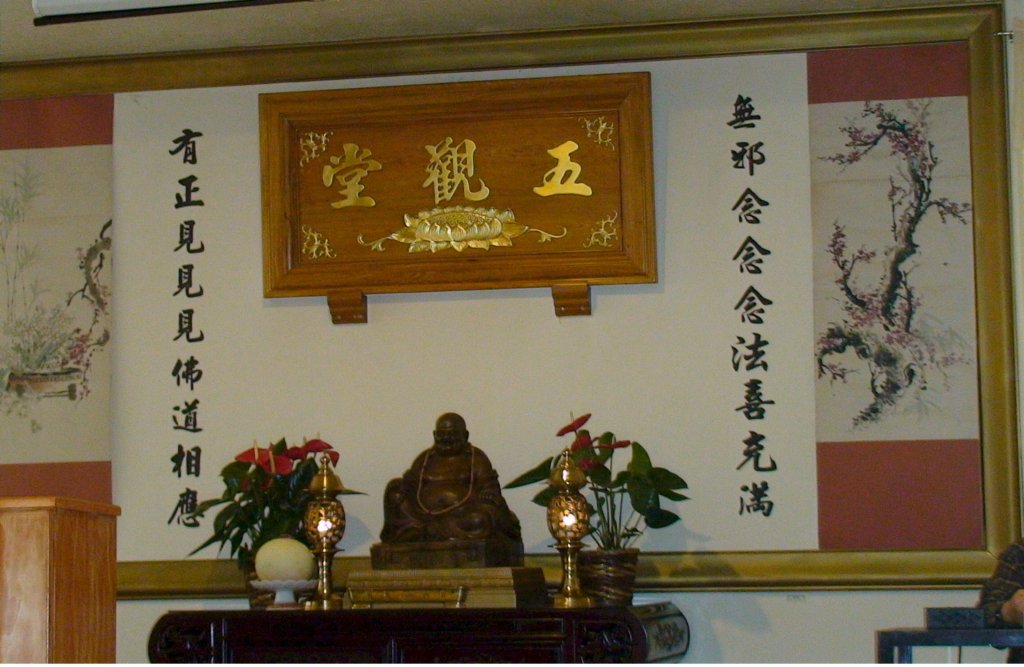 五觀堂
無邪念念念法喜充滿
有正見見見佛道相應